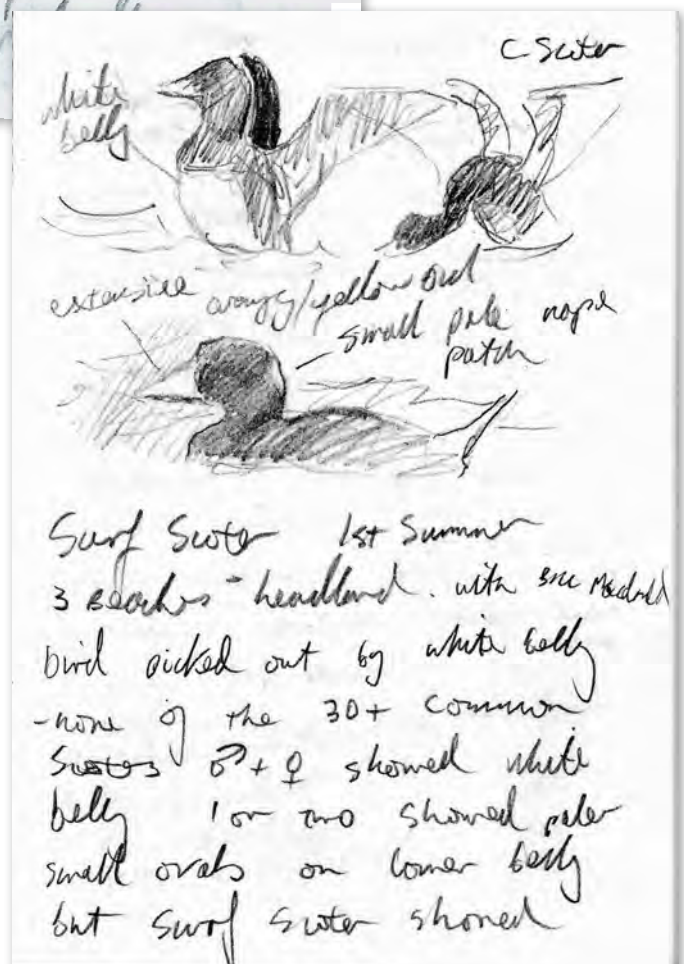 C Scoter
white
belly
extensive orangey/yellow
small pale nape
patch
Surf Scoter 1st Summer
3 Beaches - headland. with
bird picked out by white belly
-none of the 30+ common
Scoters ♂ + ♀ showed white
belly 1 or two showed paler
small ovals on lower belly
but Surf Scoter showed